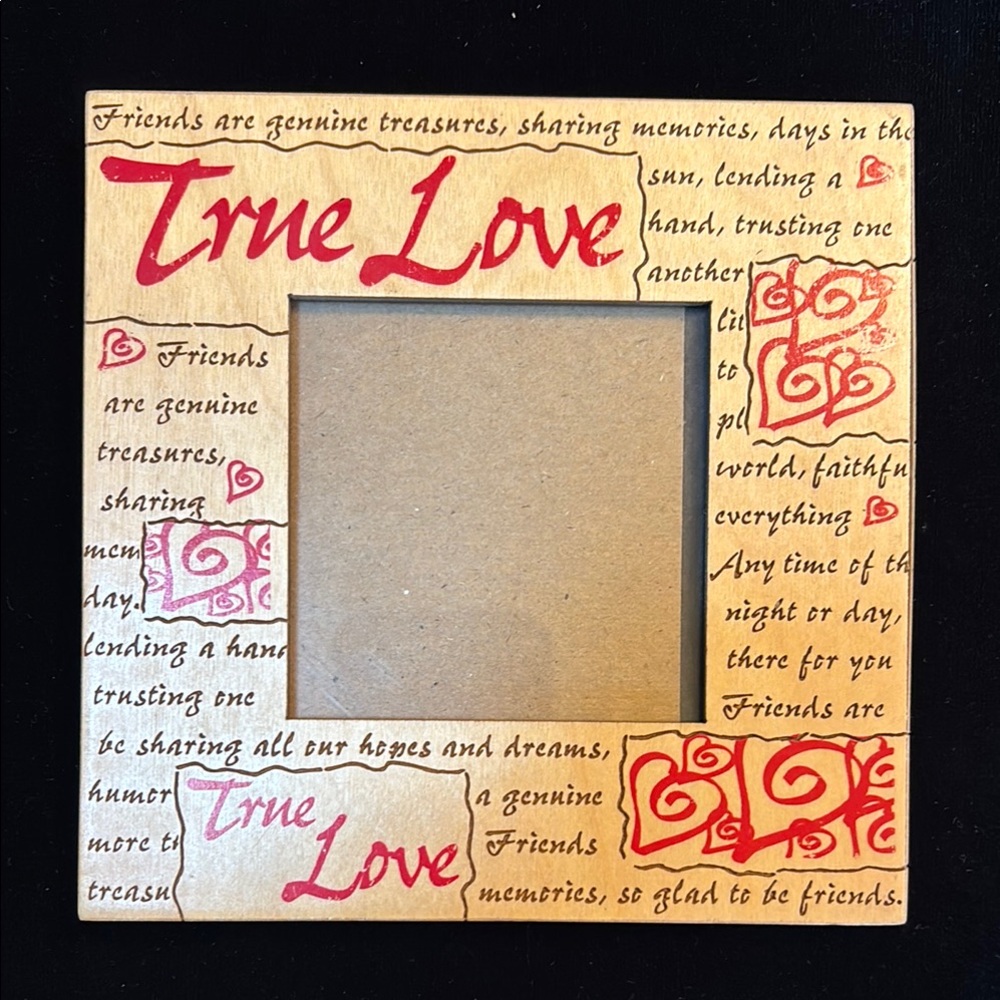 Friends are genuine treasures, sharing memories, days in the
True Love
sun, lending a
hand, trusting one
another
lit
to
pl
world, faithfu
everything
Any time of th
night or day,
there for you
Friends are
Friends
are genuine
treasures,
sharing
mem
day.
lending a hand
trusting one
be sharing all our hopes and dreams,
humor
more t
treasu
True
Love
a genuine
Friends
memories, so glad to be friends.